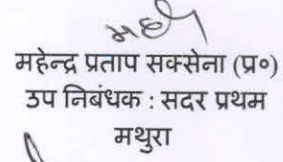 महेन्द्र प्रताप सक्सेना (प्र०)
उप निबंधक : सदर प्रथम
मथुरा